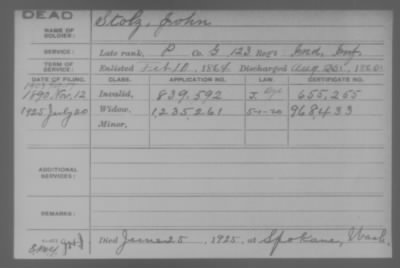 DEAD
NAME OF SOLDIER: Stolz, John
SERVICE: Late rank, P Co. G, 123 Reg't Ind. Inf.
TERM OF SERVICE: Enlisted Feb 10, 1864 Discharged Aug 25, 186
DATE OF FILING. CLASS. APPLICATION NO. LAW. CERTIFICATE NO.
1890 Nov. 12 Invalid, 839,592 J. 655,255
1925 July 20 Widow, 1,235,261 5-1-20 968433
Minor,
ADDITIONAL SERVICES:
REMARKS:
Died June 25, 1925, at Spokane, Wash.